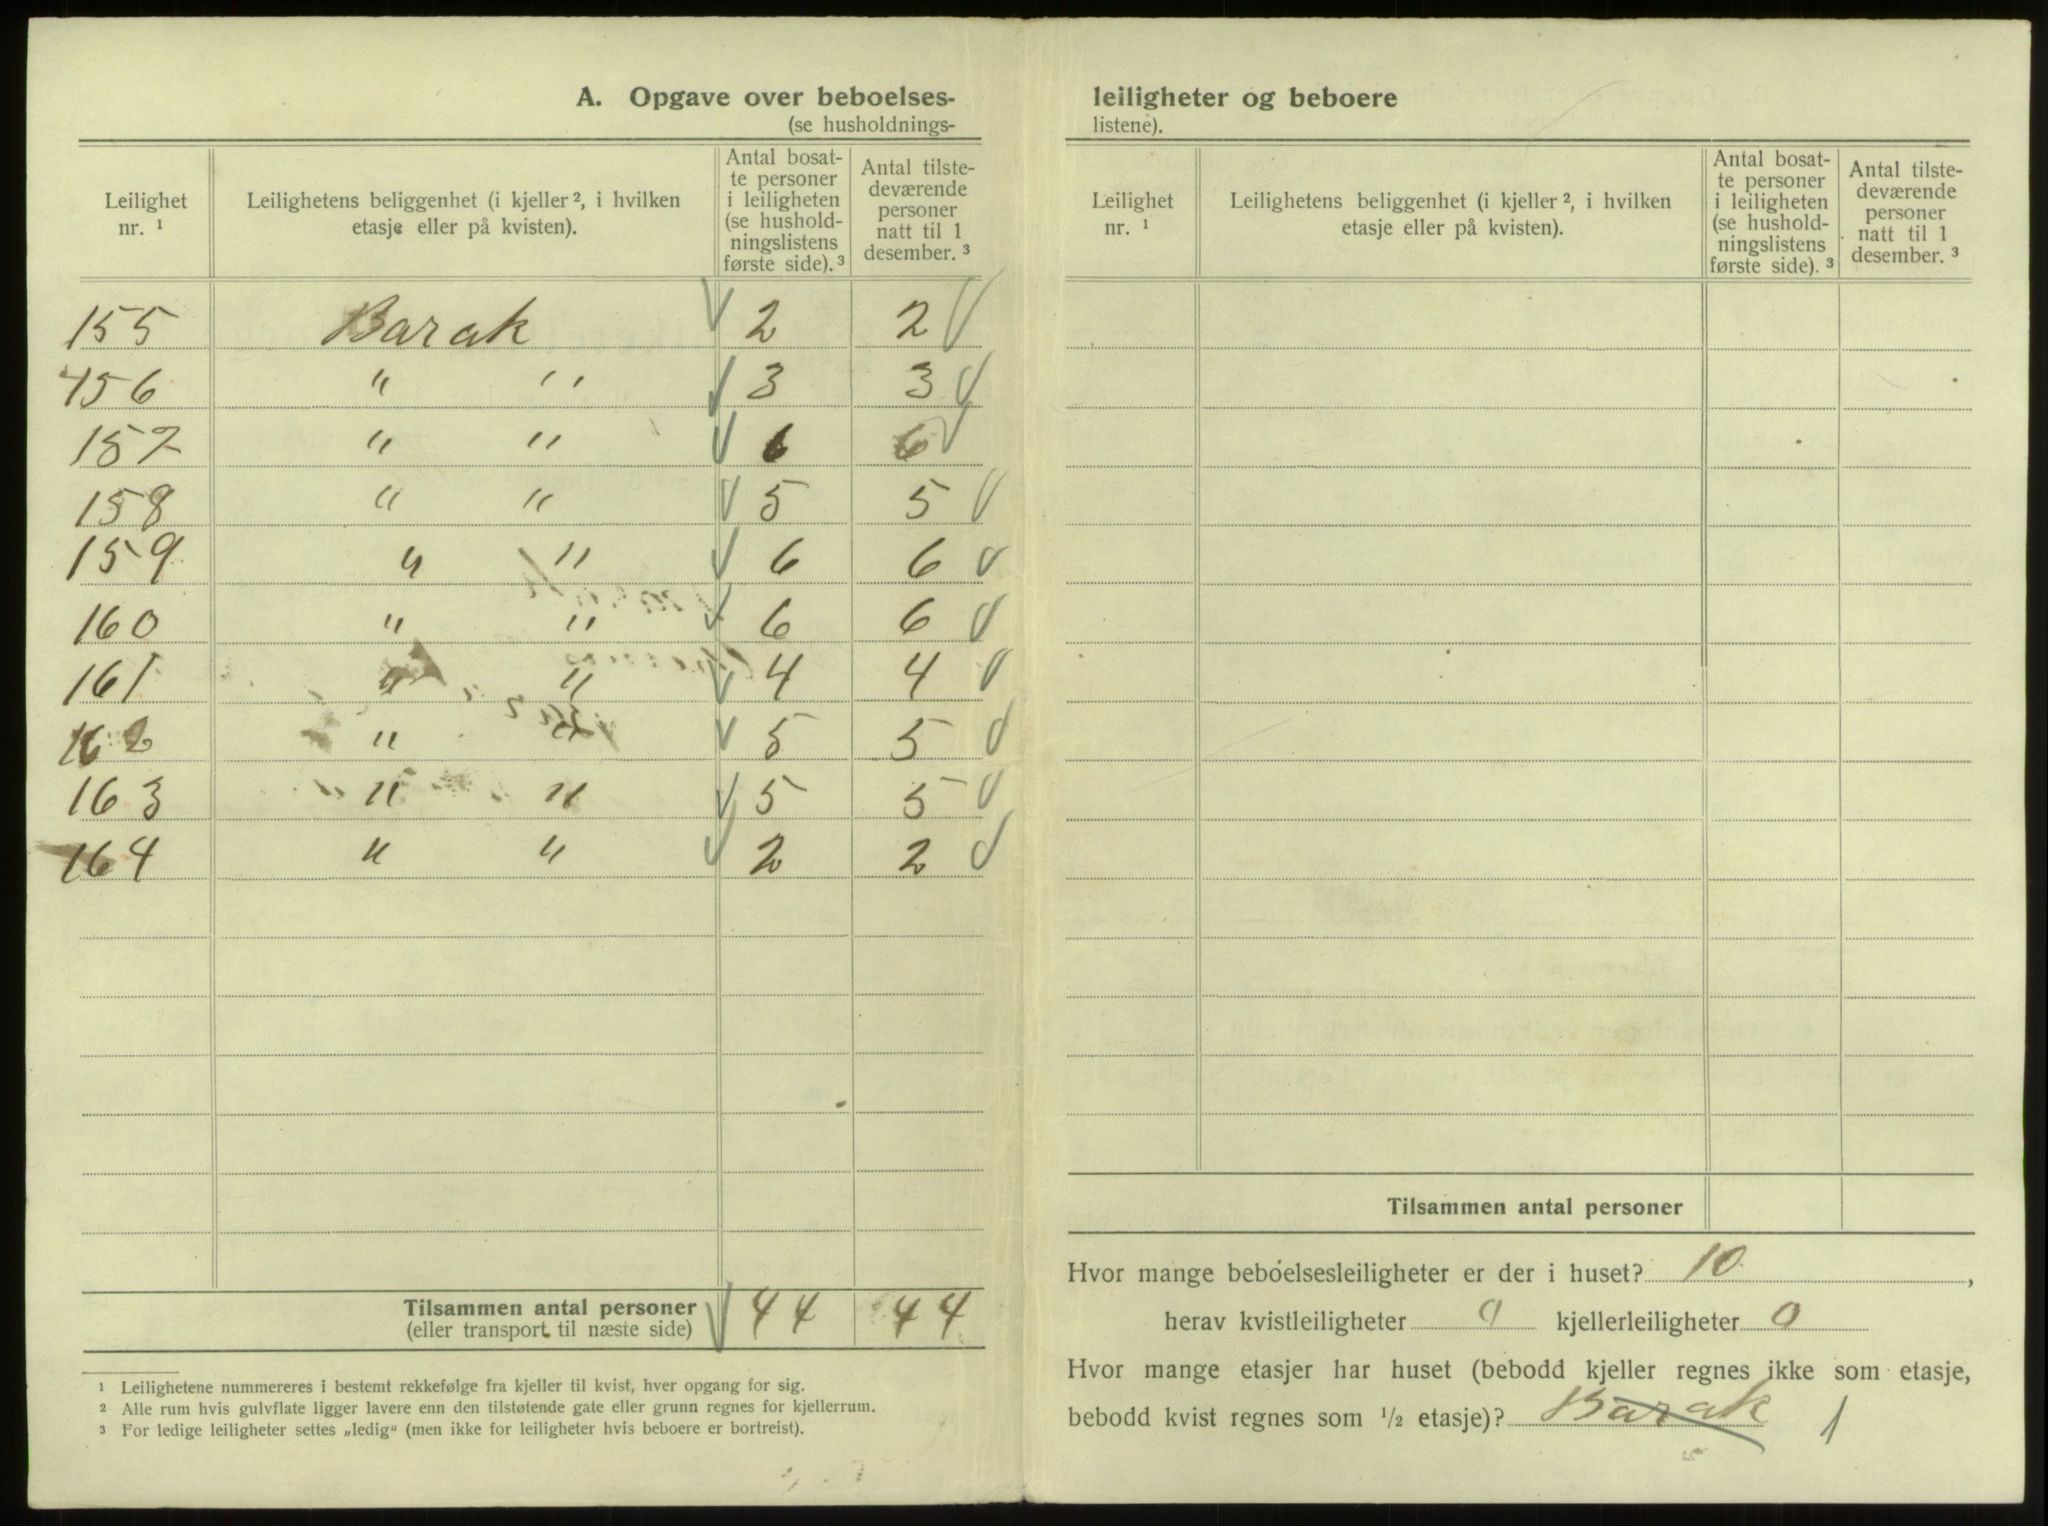 A. Opgave over beboelses-
(se husholdnings-
Leilighet
nr. ¹
Leilighetens beliggenhet (i kjeller ², i hvilken
etasje eller på kvisten).
Antal bosat-
te personer
i leiligheten
(se hushold-
ningslistens
første side). ³
Antal tilste-
deværende
personer
natt til 1
desember. ³
155 Barak 2 2
156 " " 3 3
157 " " 6 6
158 " " 5 5
159 " " 6 6
160 " " 6 6
161 " " 4 4
162 " " 5 5
163 " " 5 5
164 " " 2 2
Tilsammen antal personer 44 44
(eller transport til næste side)
¹ Leilighetene nummereres i bestemt rekkefølge fra kjeller til kvist, hver opgang for sig.
² Alle rum hvis gulvflate ligger lavere enn den tilstøtende gate eller grunn regnes for kjellerrum.
³ For ledige leiligheter settes „ledig“ (men ikke for leiligheter hvis beboere er bortreist).
leiligheter og beboere
listene).
Leilighet
nr. ¹
Leilighetens beliggenhet (i kjeller ², i hvilken
etasje eller på kvisten).
Antal bosat-
te personer
i leiligheten
(se hushold-
ningslistens
første side). ³
Antal tilste-
deværende
personer
natt til 1
desember. ³
Tilsammen antal personer
Hvor mange beboelsesleiligheter er der i huset? 10,
herav kvistleiligheter 0 kjellerleiligheter 0
Hvor mange etasjer har huset (bebodd kjeller regnes ikke som etasje,
bebodd kvist regnes som ½ etasje)? Barak 1